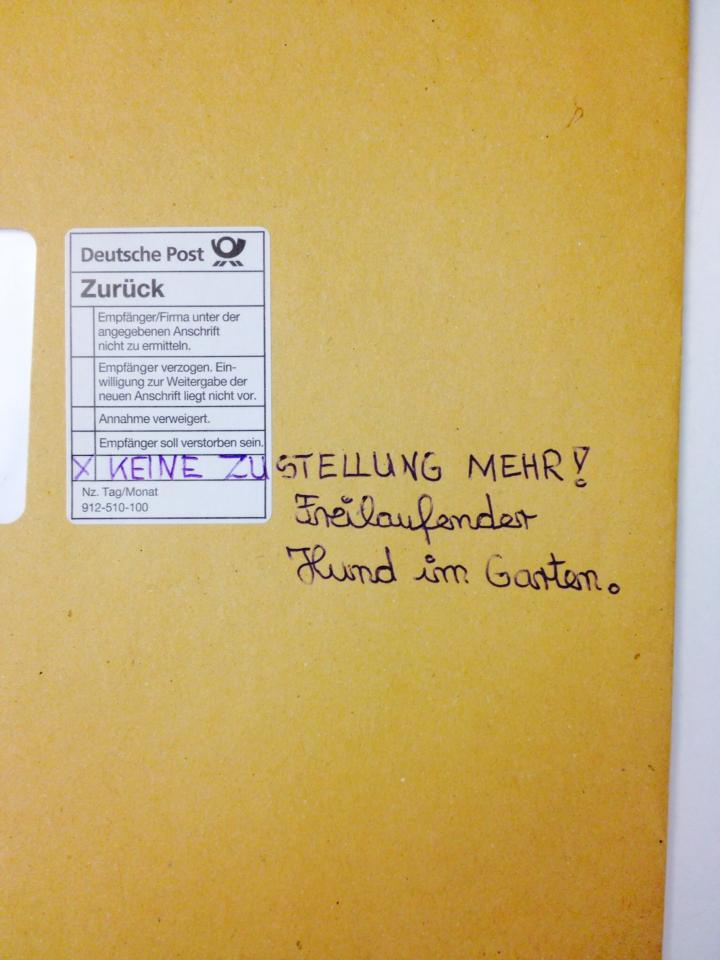 Deutsche Post
Zurück
Empfänger/Firma unter der
angegebenen Anschrift
nicht zu ermitteln.
Empfänger verzogen. Ein-
willigung zur Weitergabe der
neuen Anschrift liegt nicht vor.
Annahme verweigert.
Empfänger soll verstorben sein.
X KEINE ZUSTELLUNG MEHR!
Freilaufender
Hund im Garten.
Nz. Tag/Monat
912-510-100